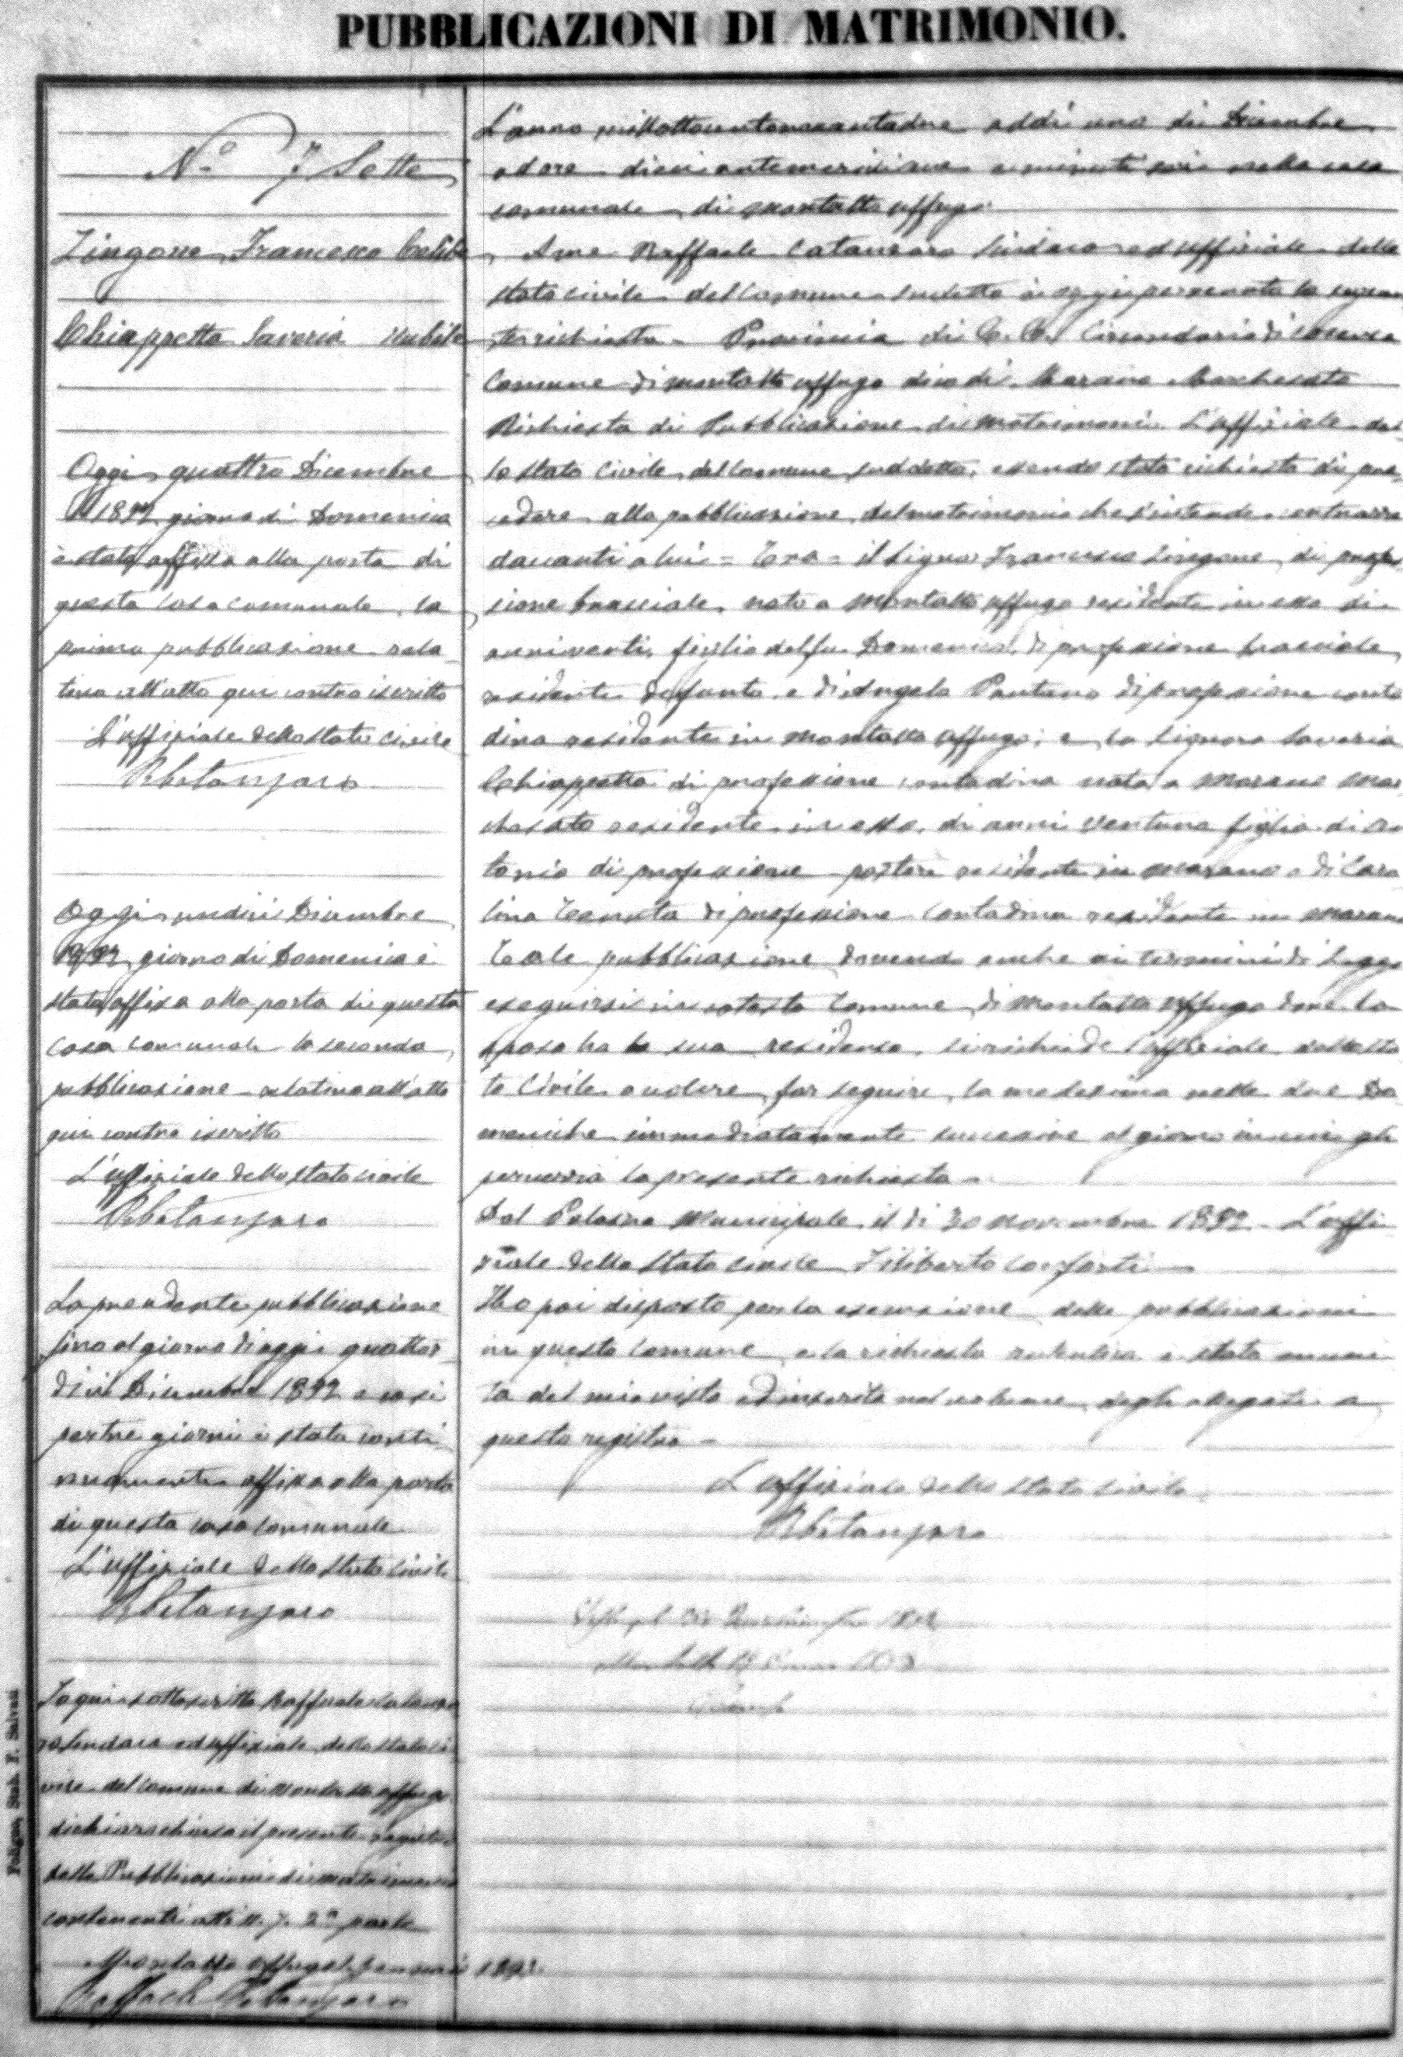 PUBBLICAZIONI DI MATRIMONIO.
N.o 7. Sette
Zingone Francesco Celibe
Chiappetta Saveria nubile
Oggi quattro Dicembre
1892 giorno di Domenica
è stata affissa alla porta di
questa casa comunale la
prima pubblicazione rela-
tiva all'atto qui contro iscritto
L'uffiziale dello stato civile
RCatanzaro
Oggi undici Dicembre
1892 giorno di Domenica è
stata affissa alla porta di questa
casa comunale la seconda
pubblicazione relativa all'atto
qui contro iscritto
L'uffiziale dello stato civile
RCatanzaro
La precedente pubblicazione
fino al giorno di oggi quattor-
dici Dicembre 1892 e così
per tre giorni è stata conti-
nuamente affissa alla porta
di questa casa comunale
L'uffiziale dello stato civile
RCatanzaro
Io qui sottoscritto Raffaele Catanza
ro Sindaco ed uffiziale dello stato ci
vile del comune di Montalto uffugo
dichiaro chiuso il presente registro
delle Pubblicazioni di matrimonio
contenenti atti n. 7. 2a parte
Montalto uffugo
Raffaele Catanzaro
L'anno milleottocentonovantadue addì uno di Dicembre
ad ore dieci antimeridiane e minuti nella casa
comunale di Montalto uffugo
A me Raffaele Catanzaro Sindaco ed uffiziale dello
stato civile del comune suddetto è oggi pervenuta la seguen
te richiesta - Provincia di C. C. Circondario di Cosenza
Comune di Montalto uffugo Marano Marchesato
Richiesta di Pubblicazione di matrimoni. L'uffiziale del
lo stato civile del comune suddetto, essendo stato richiesto di pro
cedere alla pubblicazione del matrimonio che s'intende contrarre
davanti a lui = Tra = il Signor Francesco Zingone, di profes
sione bracciale, nato a Montalto uffugo residente in esso di
anni venti, figlio del fu Domenico, di professione bracciale,
residente defunto, e di Angela Pantano di professione conta
dina residente in Montalto uffugo; e la Signora Saveria
Chiappetta di professione contadina nata a Marano Mar
chesato residente in esso, di anni ventuno figlia di An
tonio di professione pastore residente in Marano e di Caro
lina Tenuta di professione Contadina residente in Marano
Tale pubblicazione dovendo anche ai termini di Legge
eseguirsi in cotesto Comune di Montalto uffugo dove lo
sposo ha la sua residenza, si richiede l'uffiziale dello sta
to Civile a volere far seguire la medesima nelle due Do
meniche immediatamente successive al giorno in cui gli
perverrà la presente richiesta.
Dal Palazzo Municipale il dì 30 Novembre 1892 - L'uffi
ziale dello stato civile Filiberto Conforti
Ho poi disposto per la esecuzione delle pubblicazioni
in questo Comune, e la richiesta autentica è stata muni
ta del mio visto ed inserita nel volume degli allegati a
questo registro -
L'uffiziale dello stato civile
RCatanzaro
Foligno, Stab. F. Salvati